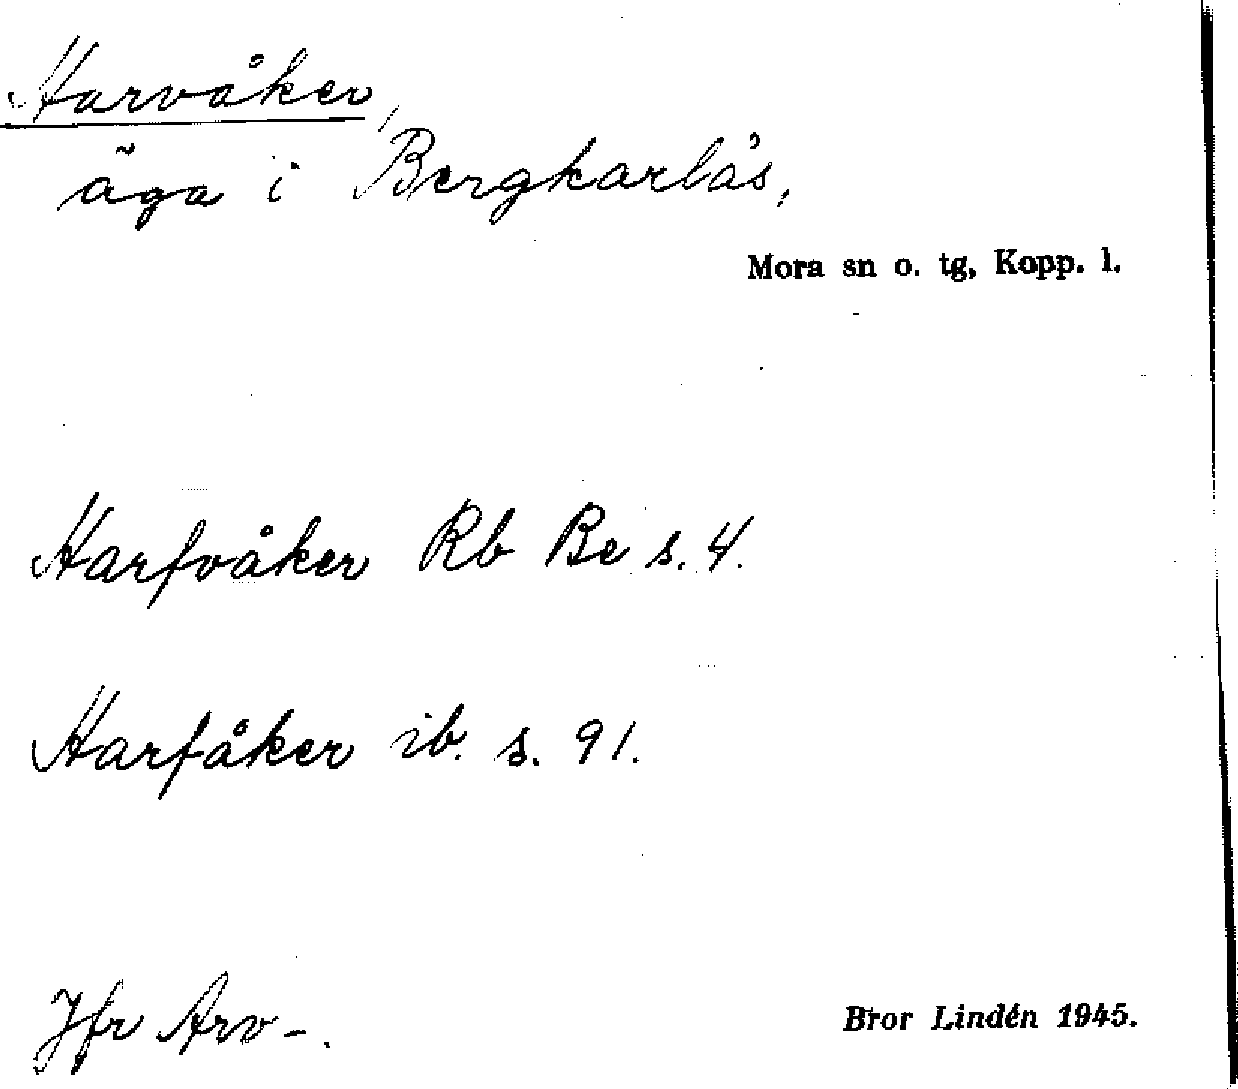 Harvåker,
äga i Bergkarlås,
Mora sn o. tg, Kopp. l.
Harfvåker Rb Be s. 4.
Harfåker ib. s. 91.
Jfr Arv-.
Bror Lindén 1945.